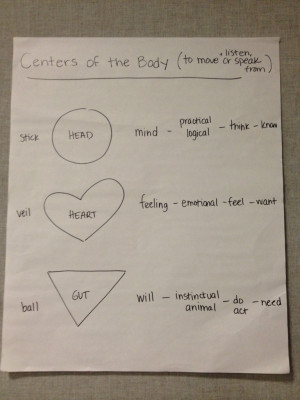 Centers of the Body (to move, listen, or speak from)
stick HEAD mind - practical logical - think - know
veil HEART feeling - emotional - feel - want
ball GUT will - instinctual animal - do act - need